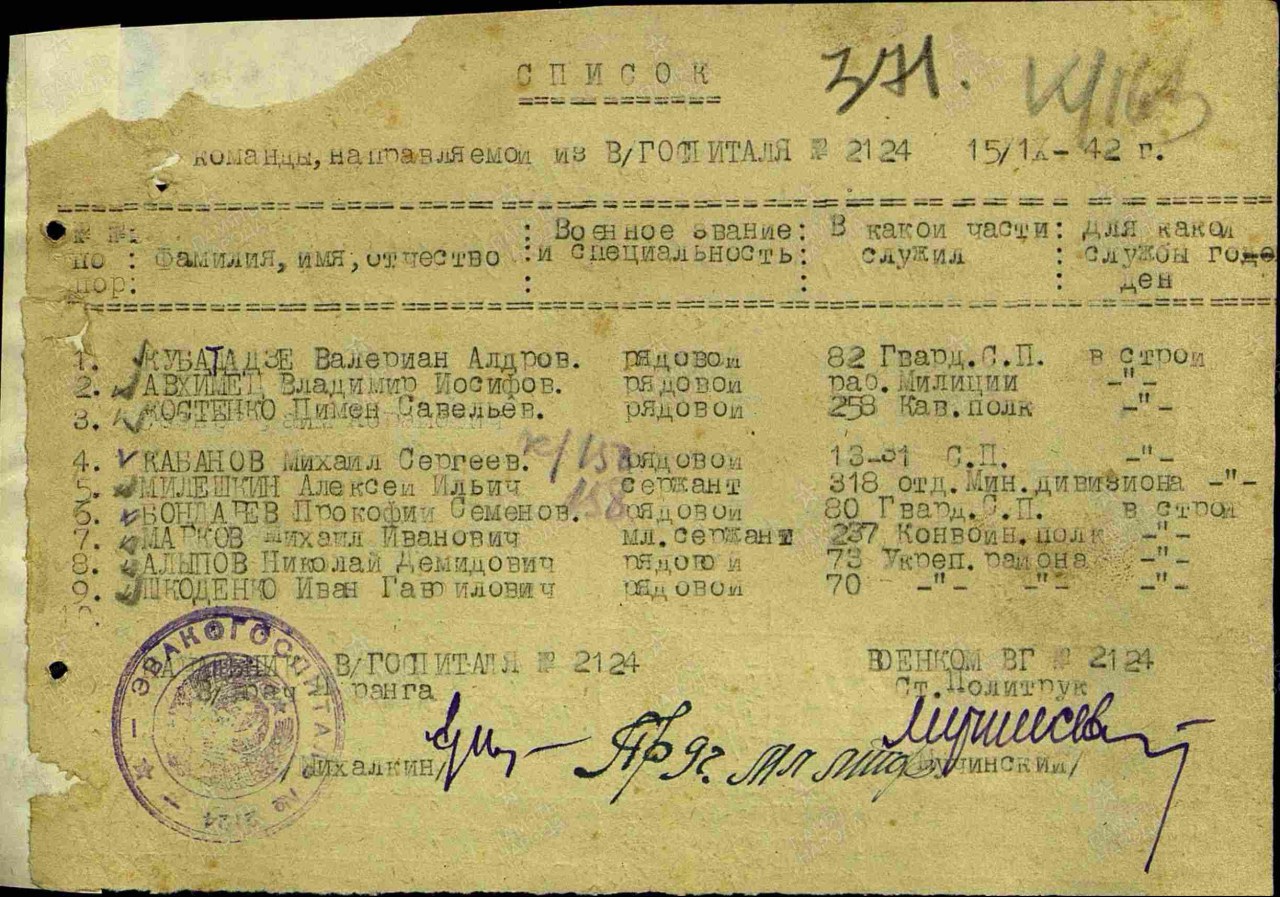 СПИСОК
371.
К/163
команды, направляемой из В/ГОСПИТАЛЯ № 2124 15/IX- 42 г.
№ №: : Военное звание: В какой части: Для какой
по : Фамилия, имя, отчество : и специальность: служил : службы годе
пор: : : : ден
1. КУБАТАДЗЕ Валериан Алдров. рядовой 82 Гвард.С.П. в строй
2. АВХИМЕЦ Владимир Иосифов. рядовой раб.Милиции -"-
3. КОСТЕНКО Пимен Савельев. рядовой 258 Кав.полк -"-
К/158
4. КАБАНОВ Михаил Сергеев. рядовой 13-01 С.П. -"-
5. МИЛЕШКИН Алексей Ильич сержант 318 отд.Мин.дивизиона -"-
158
6. БОНДАРЕВ Прокофий Семенов. рядовой 80 Гвард.С.П. в строй
7. МАРКОВ Михаил Иванович мл.сержант 237 Конвойн.полк -"-
8. АЛЫПОВ Николай Демидович рядовой 73 Укреп.района -"-
9. ШКОДЕНКО Иван Гаврилович рядовой 70 -"- -"- -"-
НАЧАЛЬНИК В/ГОСПИТАЛЯ № 2124 ВОЕНКОМ ВГ № 2124
В/врач ранга Ст.Политрук
/Михалкин/ /Мучинский/
ЭВАКОГОСПИТАЛЬ № 2124